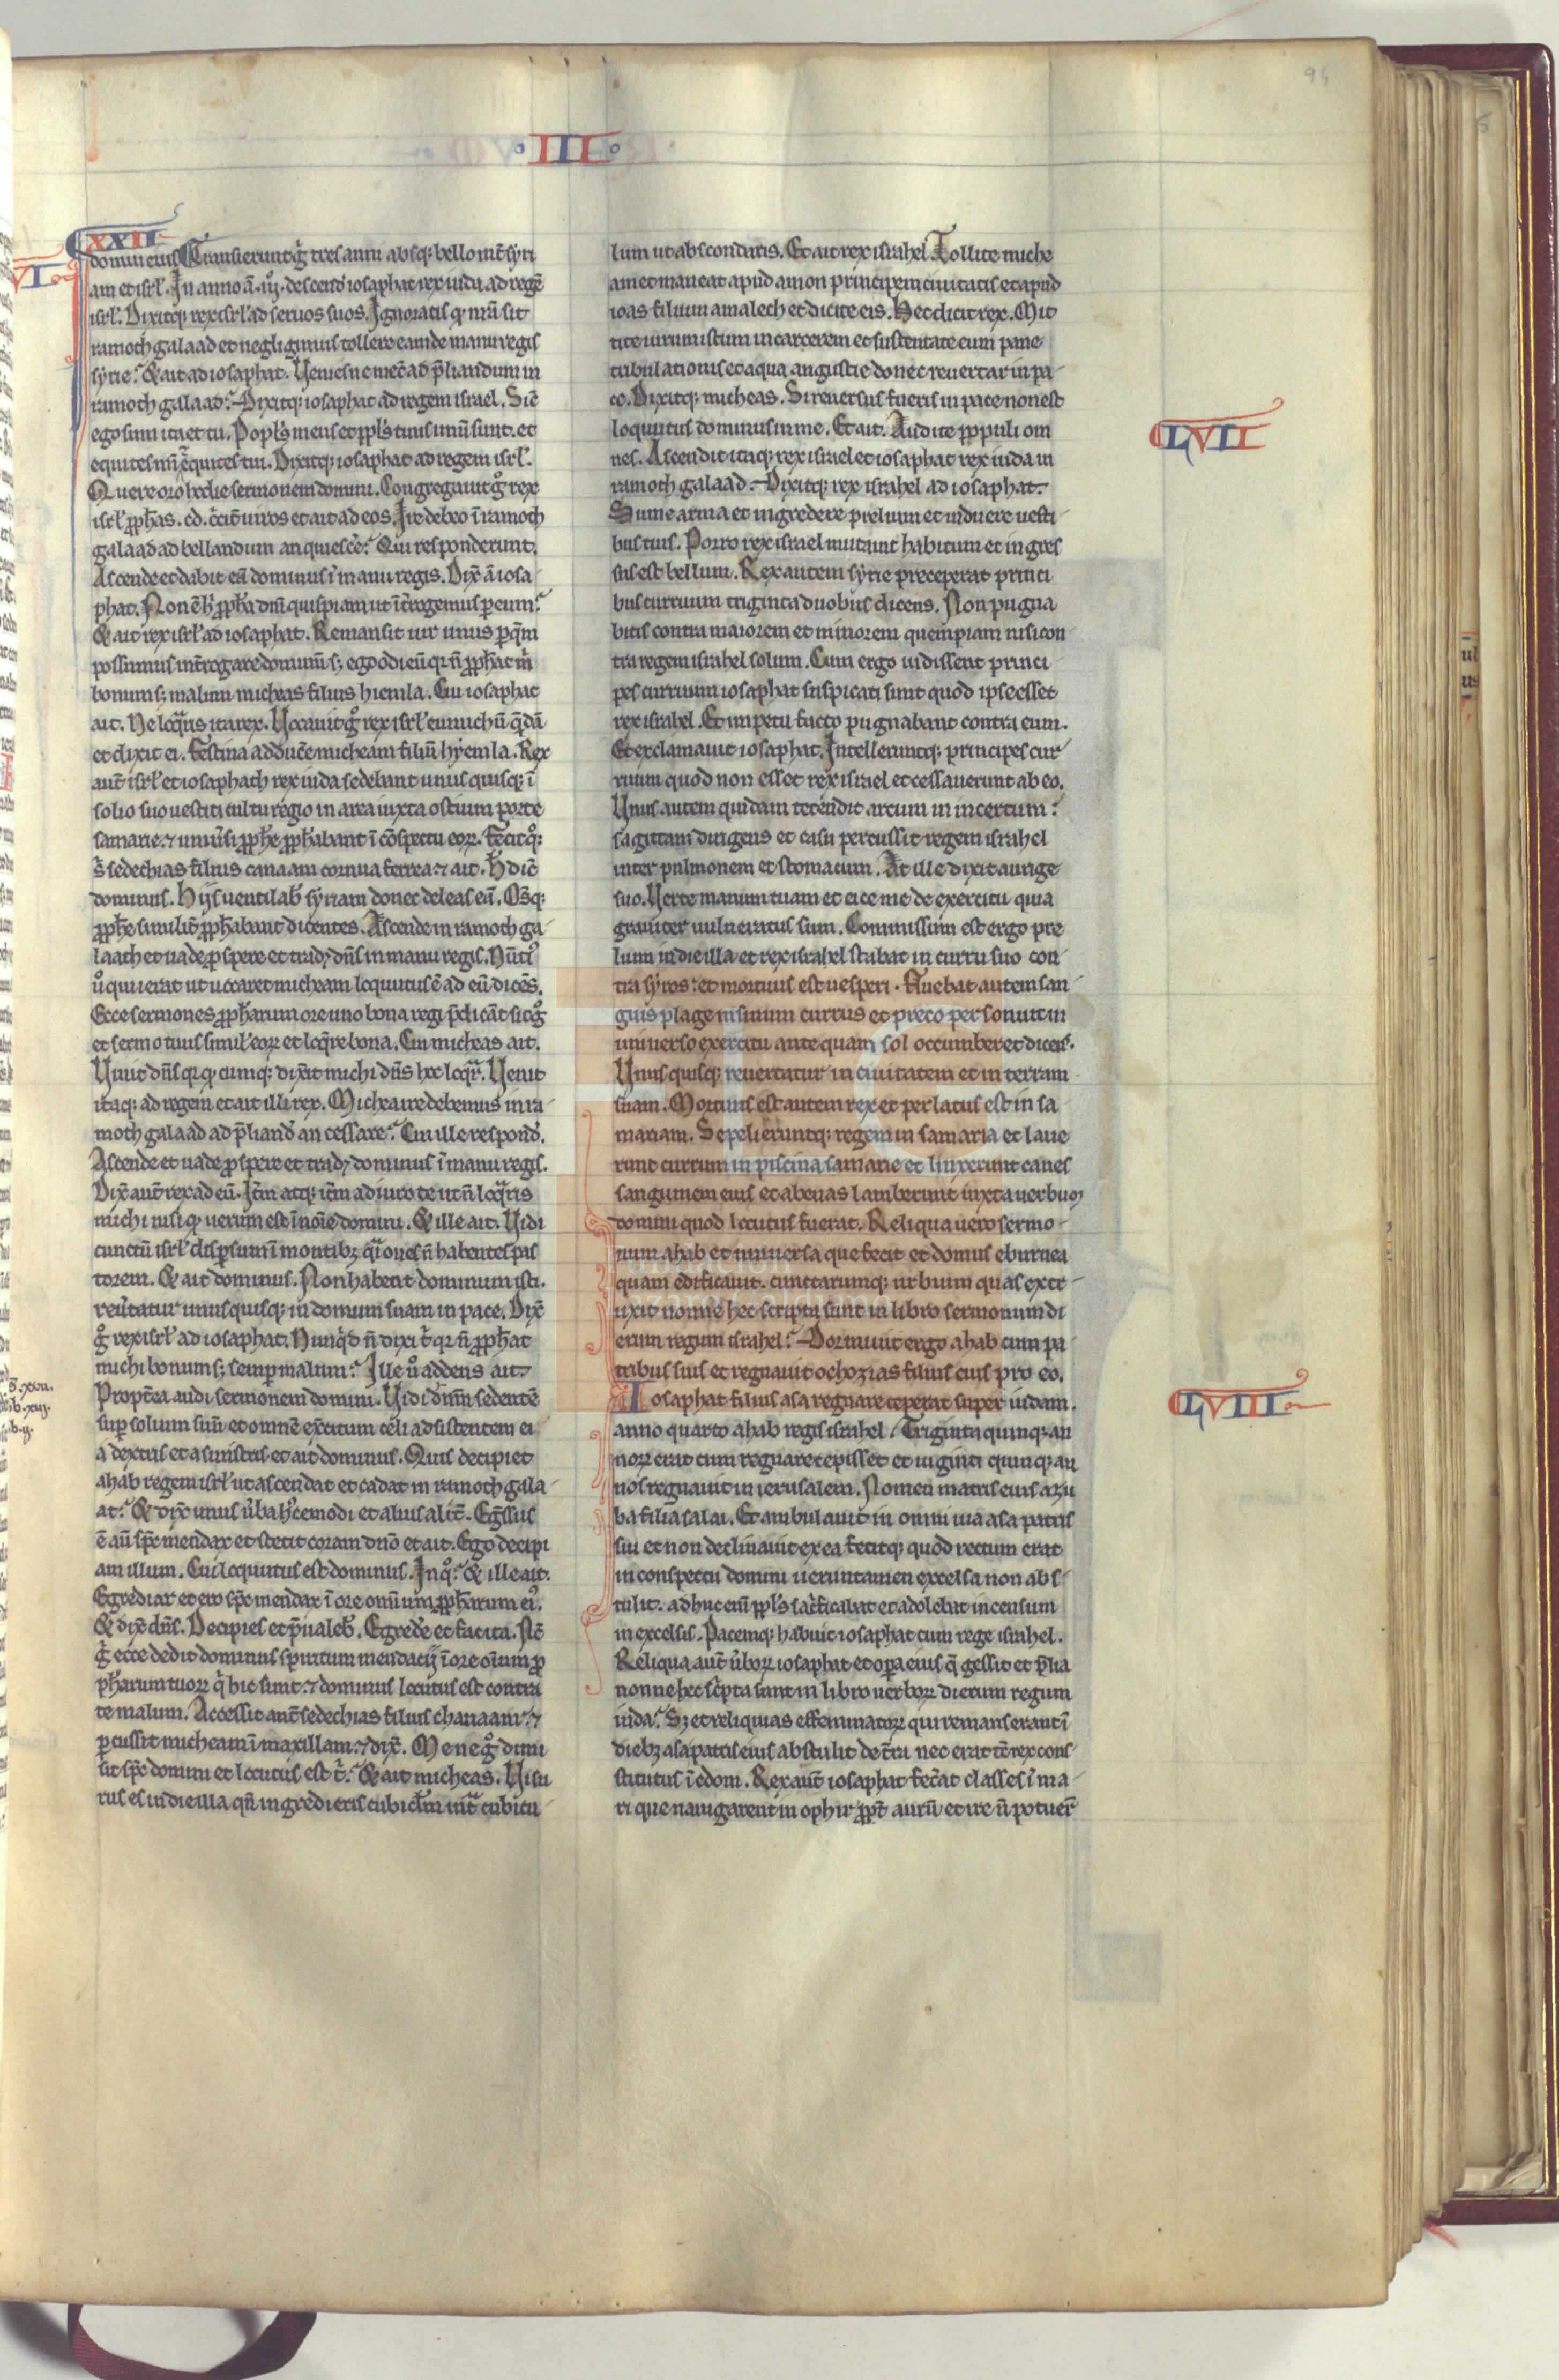 95
III
XXII
domini eius Transierunt g̊ tres anni absq; bello int̃ syri
am et isrl'. In anno ã .iij. descend' iosaphat rex iuda ad regẽ
isrl'. Dixitq; rex isrl' ad seruos suos. Ignoratis q̉ nr̃a sit
ramoth galaad et negligimus tollere eam de manu regis
syrie. & ait ad iosaphat. Veniesne mecũ ad p̃liandum in
ramoth galaad. Dixitq; iosaphat ad regem israel. Sic̃
ego sum ita et tu. Popl's meus et ppl's tuus unũ sunt. et
equites mĩ equites tui. Dixitq; iosaphat ad regem isrl'.
Quere oro hodie sermonem domini. Congregauit g̊ rex
isrl' pph̃as. cd. c̃cit̃ uiros et ait ad eos. Ire debeo ĩ ramoth
galaad ad bellandum an quiesce͛. Qui responderunt.
Ascende et dabit eã dominus ĩ manu regis. Dix̃ ã iosa
phat. Non ẽ h̉ pph̃a dñi quispiam ut ĩt̃rogemus p eum.
& ait rex isrl' ad iosaphat. Remansit uir unus p quẽ
possumus int̃rogare dominũ s; ego odi eũ qr̃ ñ pph̃at m̉
bonum s; malum micheas filius hiemla. Cui iosaphat
ait. Ne loq̃ris ita rex. Vocauit g̊ rex isrl' eunuchũ q̃dã
et dixit ei. Festina adduce͛ micheam filiũ hyemla. Rex
aut̃ isrl' et iosaphach rex iuda sedebant unus quisq; ĩ
solio suo uestiti cultu regio in area iuxta ostium porte
samarie. ⁊ uniu͛si pph̃e pph̃abant ĩ cõspectu eoꝝ. Fecit q̊;
s̉ sedechias filius canaam cornua ferrea ⁊ ait. H̃ dic̃
dominus. Hijs uentilab' syriam donec deleas eã. Om̃sq;
pph̃e similit̃ pph̃abant dicentes. Ascende in ramoth ga
laath et uade p spere et trad; dñs in manu regis. Nũti͛
ů qui ierat ut uocaret micheam loquutus ẽ ad eũ dicẽs.
Ecce sermones pph̃arum ore uno bona regi p̃dicãt sit g̊
et sermo tuus simil' eoꝝ et loq̃re bona. Cui micheas ait.
Viuit dñs q̉ q̉cumq; dix̃it michi dñs hec loq̃r. Venit
itaq; ad regem et ait illi rex. Michea ire debemus in ra
moth galaad ad p̃liand' an cessare. Cui ille respond'.
Ascende et uade p spere et trad; dominus ĩ manu regis.
Dix̃ aut̃ rex ad eũ. It̃m atq; it̃m adiuro te ut ñ loq̃ris
michi nisi q̉ uerum est ĩ noĩe domini. & ille ait. Vidi
cunctũ isrl' dispersum ĩ montibꝫ q̃i oues ñ habentes pas
torem. & ait dominus. Non habent dominum isti.
reu͛tatur unus quisq; in domum suam in pace. Dix̃
g̊ rex isrl' ad iosaphat. Nunq̉d ñ dixi t̉ qr̃ ñ pph̃at
michi bonum s; semp malum. Ille ů addens ait.
Propt̃ea audi sermonem domini. Vidi dñm sedentẽ
sup solium suũ et omnẽ ex͛citum celi adsistentem ei
a dextris et a sinistris et ait dominus. Quis decipiet
ahab regem isrl' ut ascendat et cadat in ramoth gala
at. & dix̃ unus u͛ba h̉cemodi et alius alit̃. Egs̃sus
ẽ aũ sp̃c mendax et stetit coram dño et ait. Ego decipi
am illum. Cui loquutus est dominus. In q̊. & ille ait.
Egrediar et ero sp̃c mendax ĩ ore omnium pph̃arum ei͛.
& dix̃ dñs. Decipies et p̃ualeb'. Egrede͛ et fac ita. Nc̃
g̊ ecce dedit dominus spiritum mendacij ĩ ore oĩum p
ph̃arum tuoꝝ q̉ hic sunt. ⁊ dominus locutus est contra
te malum. Accessit aut̃ sedechias filius chanaam. ⁊
p cussit micheam ĩ maxillam. ⁊ dix̃. Me ne g̊ dimi
sit sp̃c domini et locutus est t̉. & ait micheas. Visu
rus es in die illa qñ ingredieris cubiclm̃ int̃ cubicu
lum ut abscondaris. Et ait rex israhel. Tollite miche
am et maneat apud amon principem ciuitatis et apud
ioas filium amalech et dicite eis. Hec dicit rex. Mit
tite uirum istum in carcerem et sustentate eum pane
tribulationis et aqua angustie donec reuertar in pa
ce. Dixitq; micheas. Si reuersus fueris in pace non est
loquutus dominus in me. Et ait. Audite ppopuli om
nes. Ascendit itaq; rex israel et iosaphat rex iuda in
ramoth galaad. Dixitq; rex israhel ad iosaphat.
Sume arma et ingredere prelium et induere uesti
bus tuis. Porro rex israel mutauit habitum et ingres
sus est bellum. Rex autem syrie preceperat princi
bus curruum triginta duobus dicens. Non pugna
bitis contra maiorem et minorem quempiam nisi con
tra regem israhel solum. Cum ergo uidissent princi
pes curruum iosaphat suspicati sunt quod ipse esset
rex israhel. Et impetu facto pugnabant contra eum.
Et exclamauit iosaphat. Intellexeruntq; principes cur
ruum quod non esset rex israel et cessauerunt ab eo.
Unus autem quidam tetendit arcum in incertum.
sagittam dirigens et casu percussit regem israhel
inter pulmonem et stomacum. At ille dixit aurige
suo. Verte manum tuam et eice me de exercitu quia
grauiter uulneratus sum. Commissum est ergo pre
lium in die illa et rex israhel stabat in curru suo con
tra syros. et mortuus est uesperi. fluebat autem san
guis plage in sinum currus et preco personuit in
uniuerso exercitu ante quam sol occumberet dicens.
Unus quisq; reuertatur in ciuitatem et in terram
suam. Mortuus est autem rex et perlatus est in sa
mariam. Sepelieruntq; regem in samaria et laue
runt currum in piscina samarie et linxerunt canes
sanguinem eius et abenas lamberunt iuxta uerbuꝫ
domini quod locutus fuerat. Reliqua uero sermo
num ahab et uniuersa que fecit et domus eburnea
quam edificauit. cunctarumq; urbium quas extr
uxit nonne hec scripta sunt in libro sermonum di
erum regum israhel. Dormiuit ergo ahab cum pa
tribus suis et regnauit ochozias filius eius pro eo.
Iosaphat filius asa regnare ceperat super iudam.
anno quarto ahab regis israhel. Triginta quinq; an
noꝝ erat cum regnare cepisset et uiginti quinq; an
nos regnauit in ierusalem. Nomen matris eius azu
ba filia salai. Et ambulauit in omni uia asa patris
sui et non declinauit ex ea fecitq; quod rectum erat
in conspectu domini ueruntamen excelsa non abs
tulit. adhuc eni ppl's sac̃ficabat et adolebat incensum
in excelsis. Pacemq; habuit iosaphat cum rege israhel.
Reliqua aut̃ u͛boꝝ iosaphat et opa eius q̃ gessit et p̃lia
nonne hec sc̉pta sunt in libro uerboꝝ dierum regum
iuda. Sꝫ et reliquias effeminatoꝝ qui remanserant ĩ
diebꝫ asa patris eius abstulit de t̃ra nec erat tc̃ rex cons
titutus ĩ edom. Rex aut̃ iosaphat fec̃at classes ĩ ma
ri que nauigarent in ophir ppt̃ aurũ et ire ñ potuer̃
LVII
LVIII